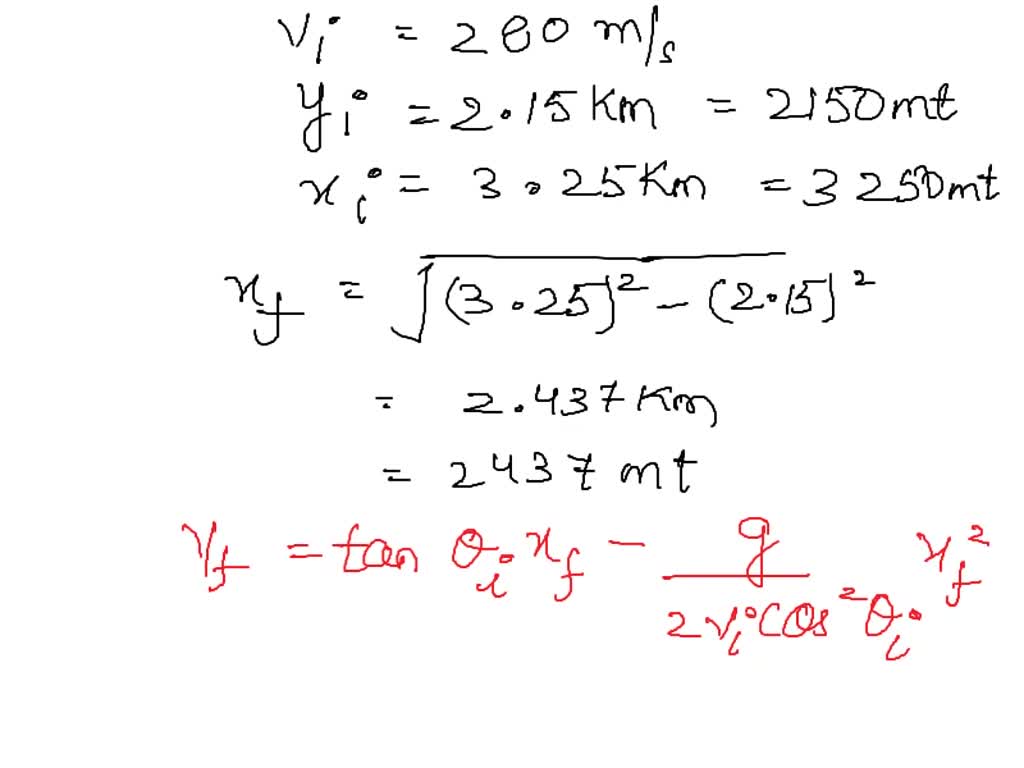 vᵢ = 280 m/s
yᵢ = 2.15 Km = 2150 mt
xᵢ = 3.25 Km = 3250 mt
x_f = √(3.25)² - (2.15)²
= 2.437 Km
= 2437 mt
y_f = tan θᵢ x_f - g / 2 vᵢ cos² θᵢ x_f²